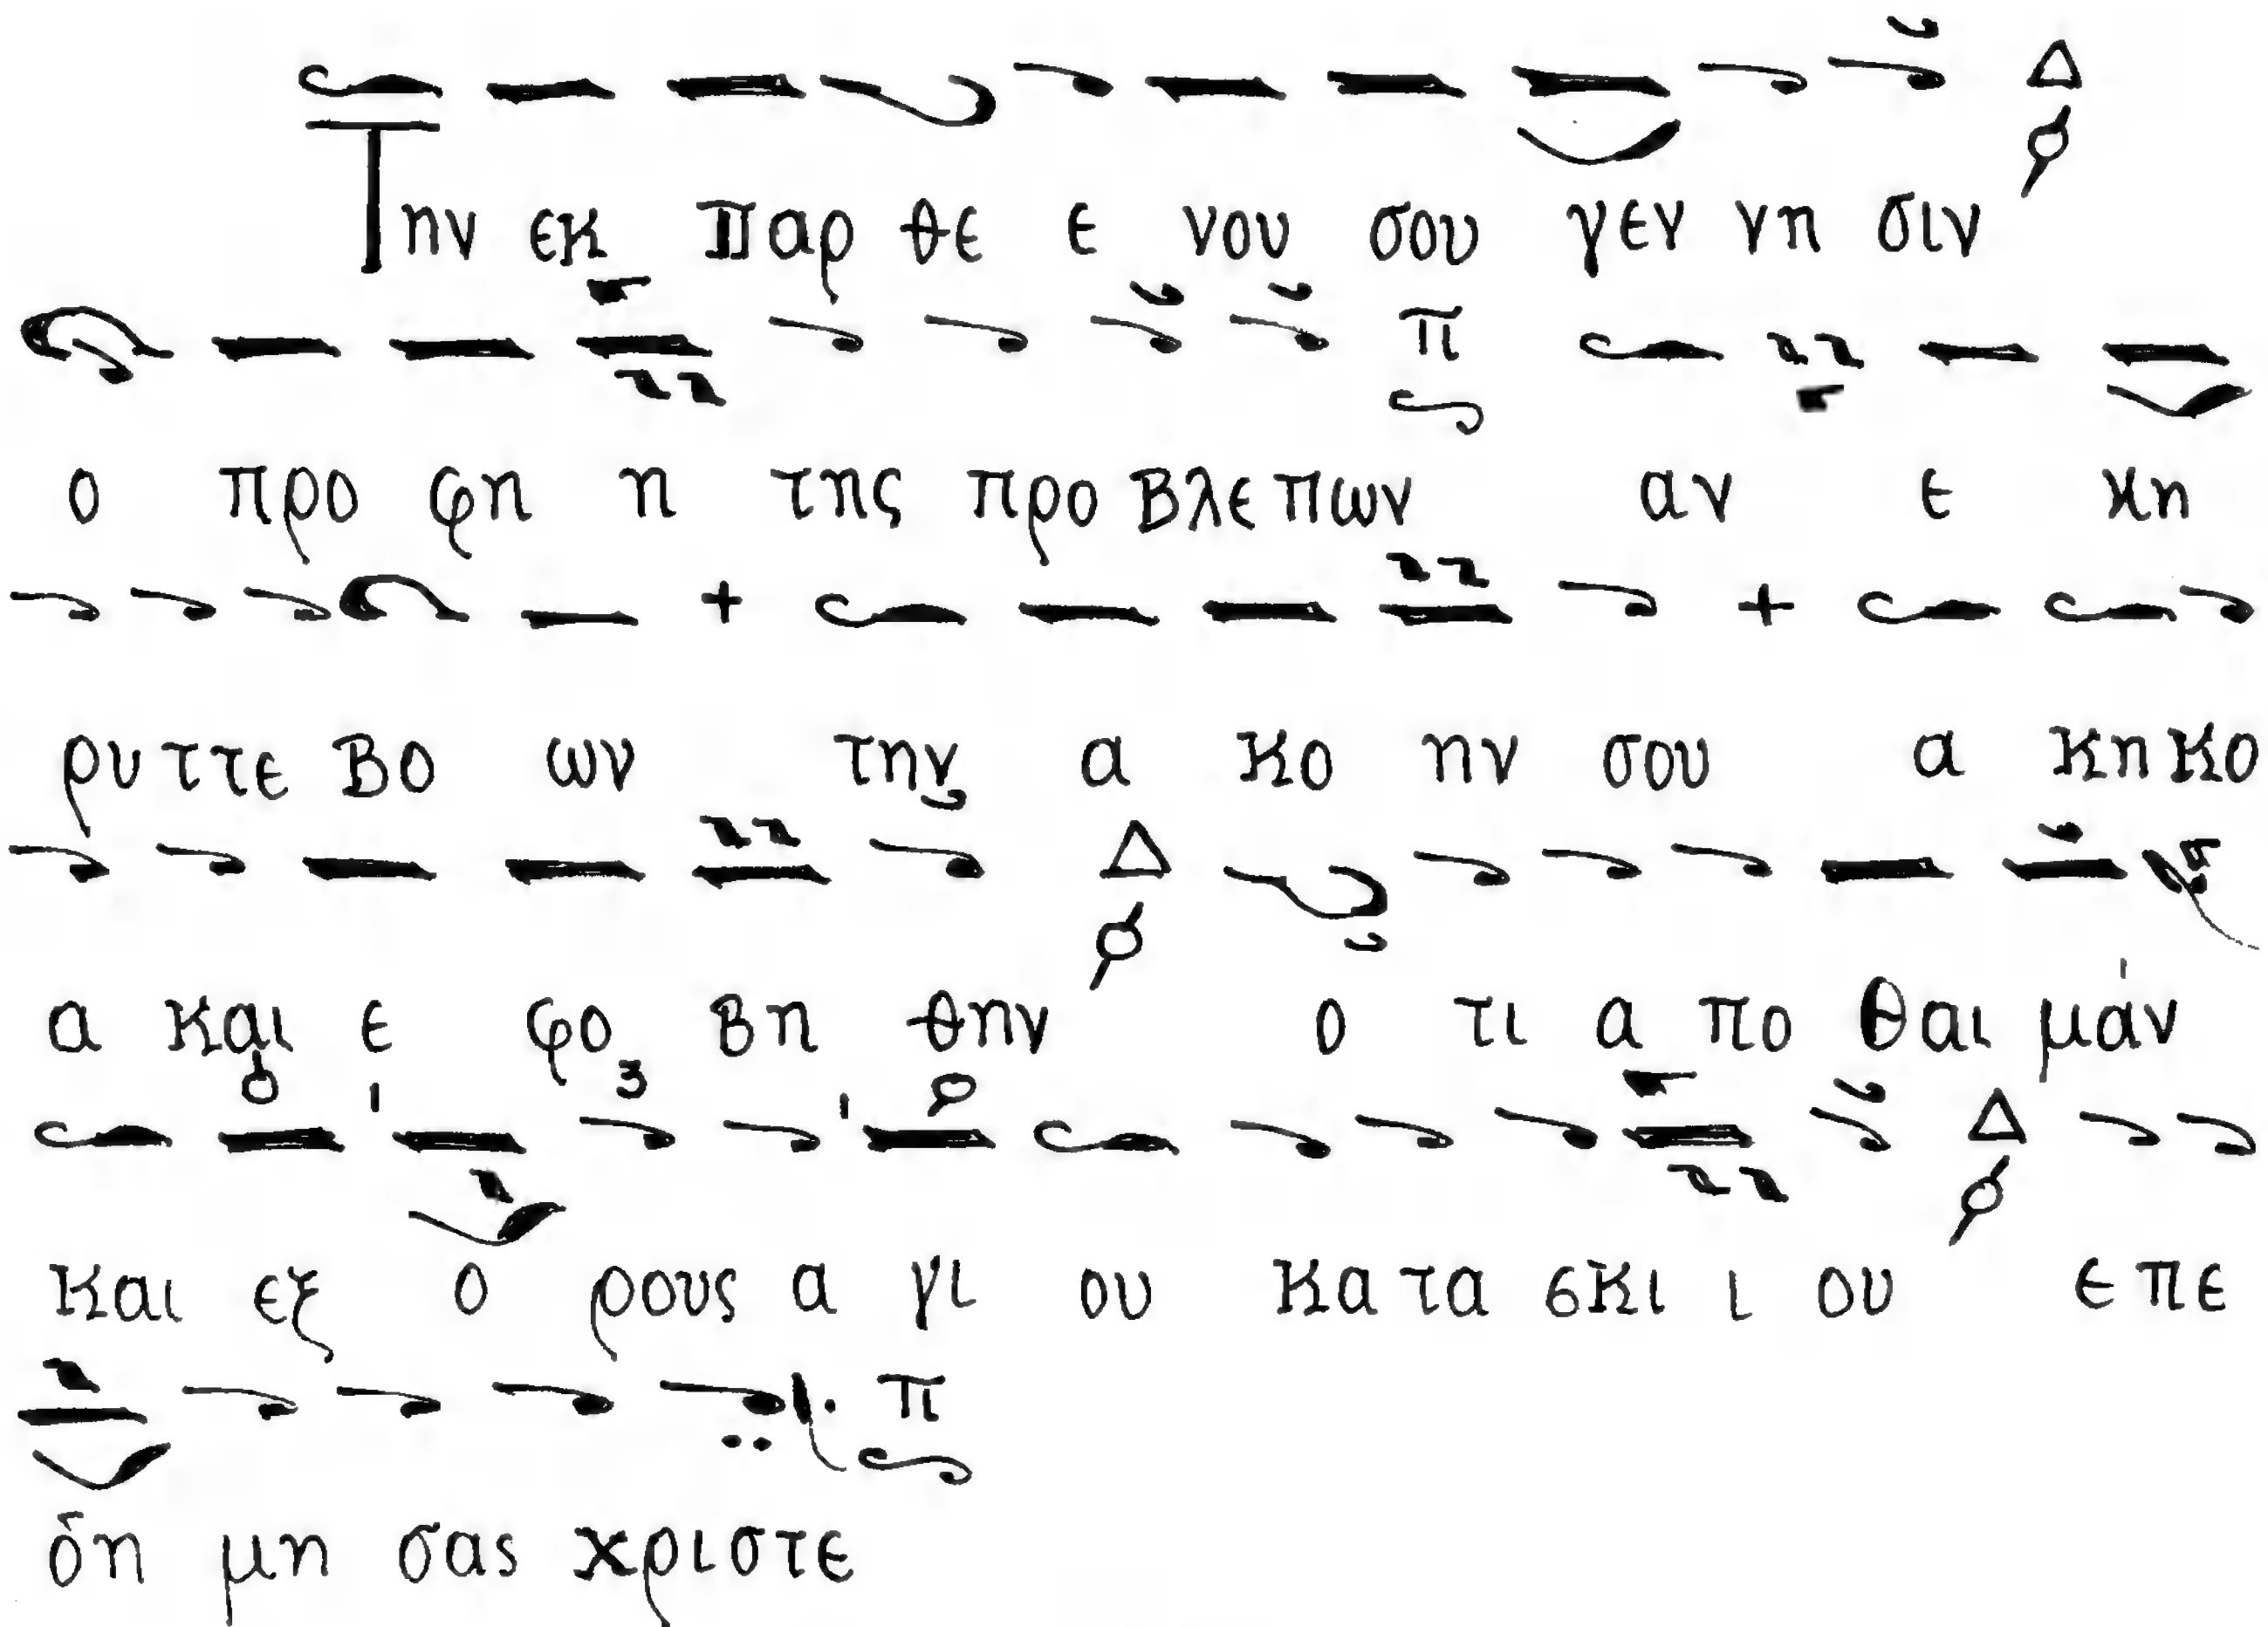 Την εκ Παρ θε ε νου σου γεν νη σιν
ο προ φη η της προ βλε πων αν ε κη
ρυ ττε βο ων την α κο ην σου α κη κο
α και ε φο βη θην ο τι α πο θαι μάν
και εξ ο ρους α γι ου κα τα σκι ι ου ε πε
δη μη σας χρι στε